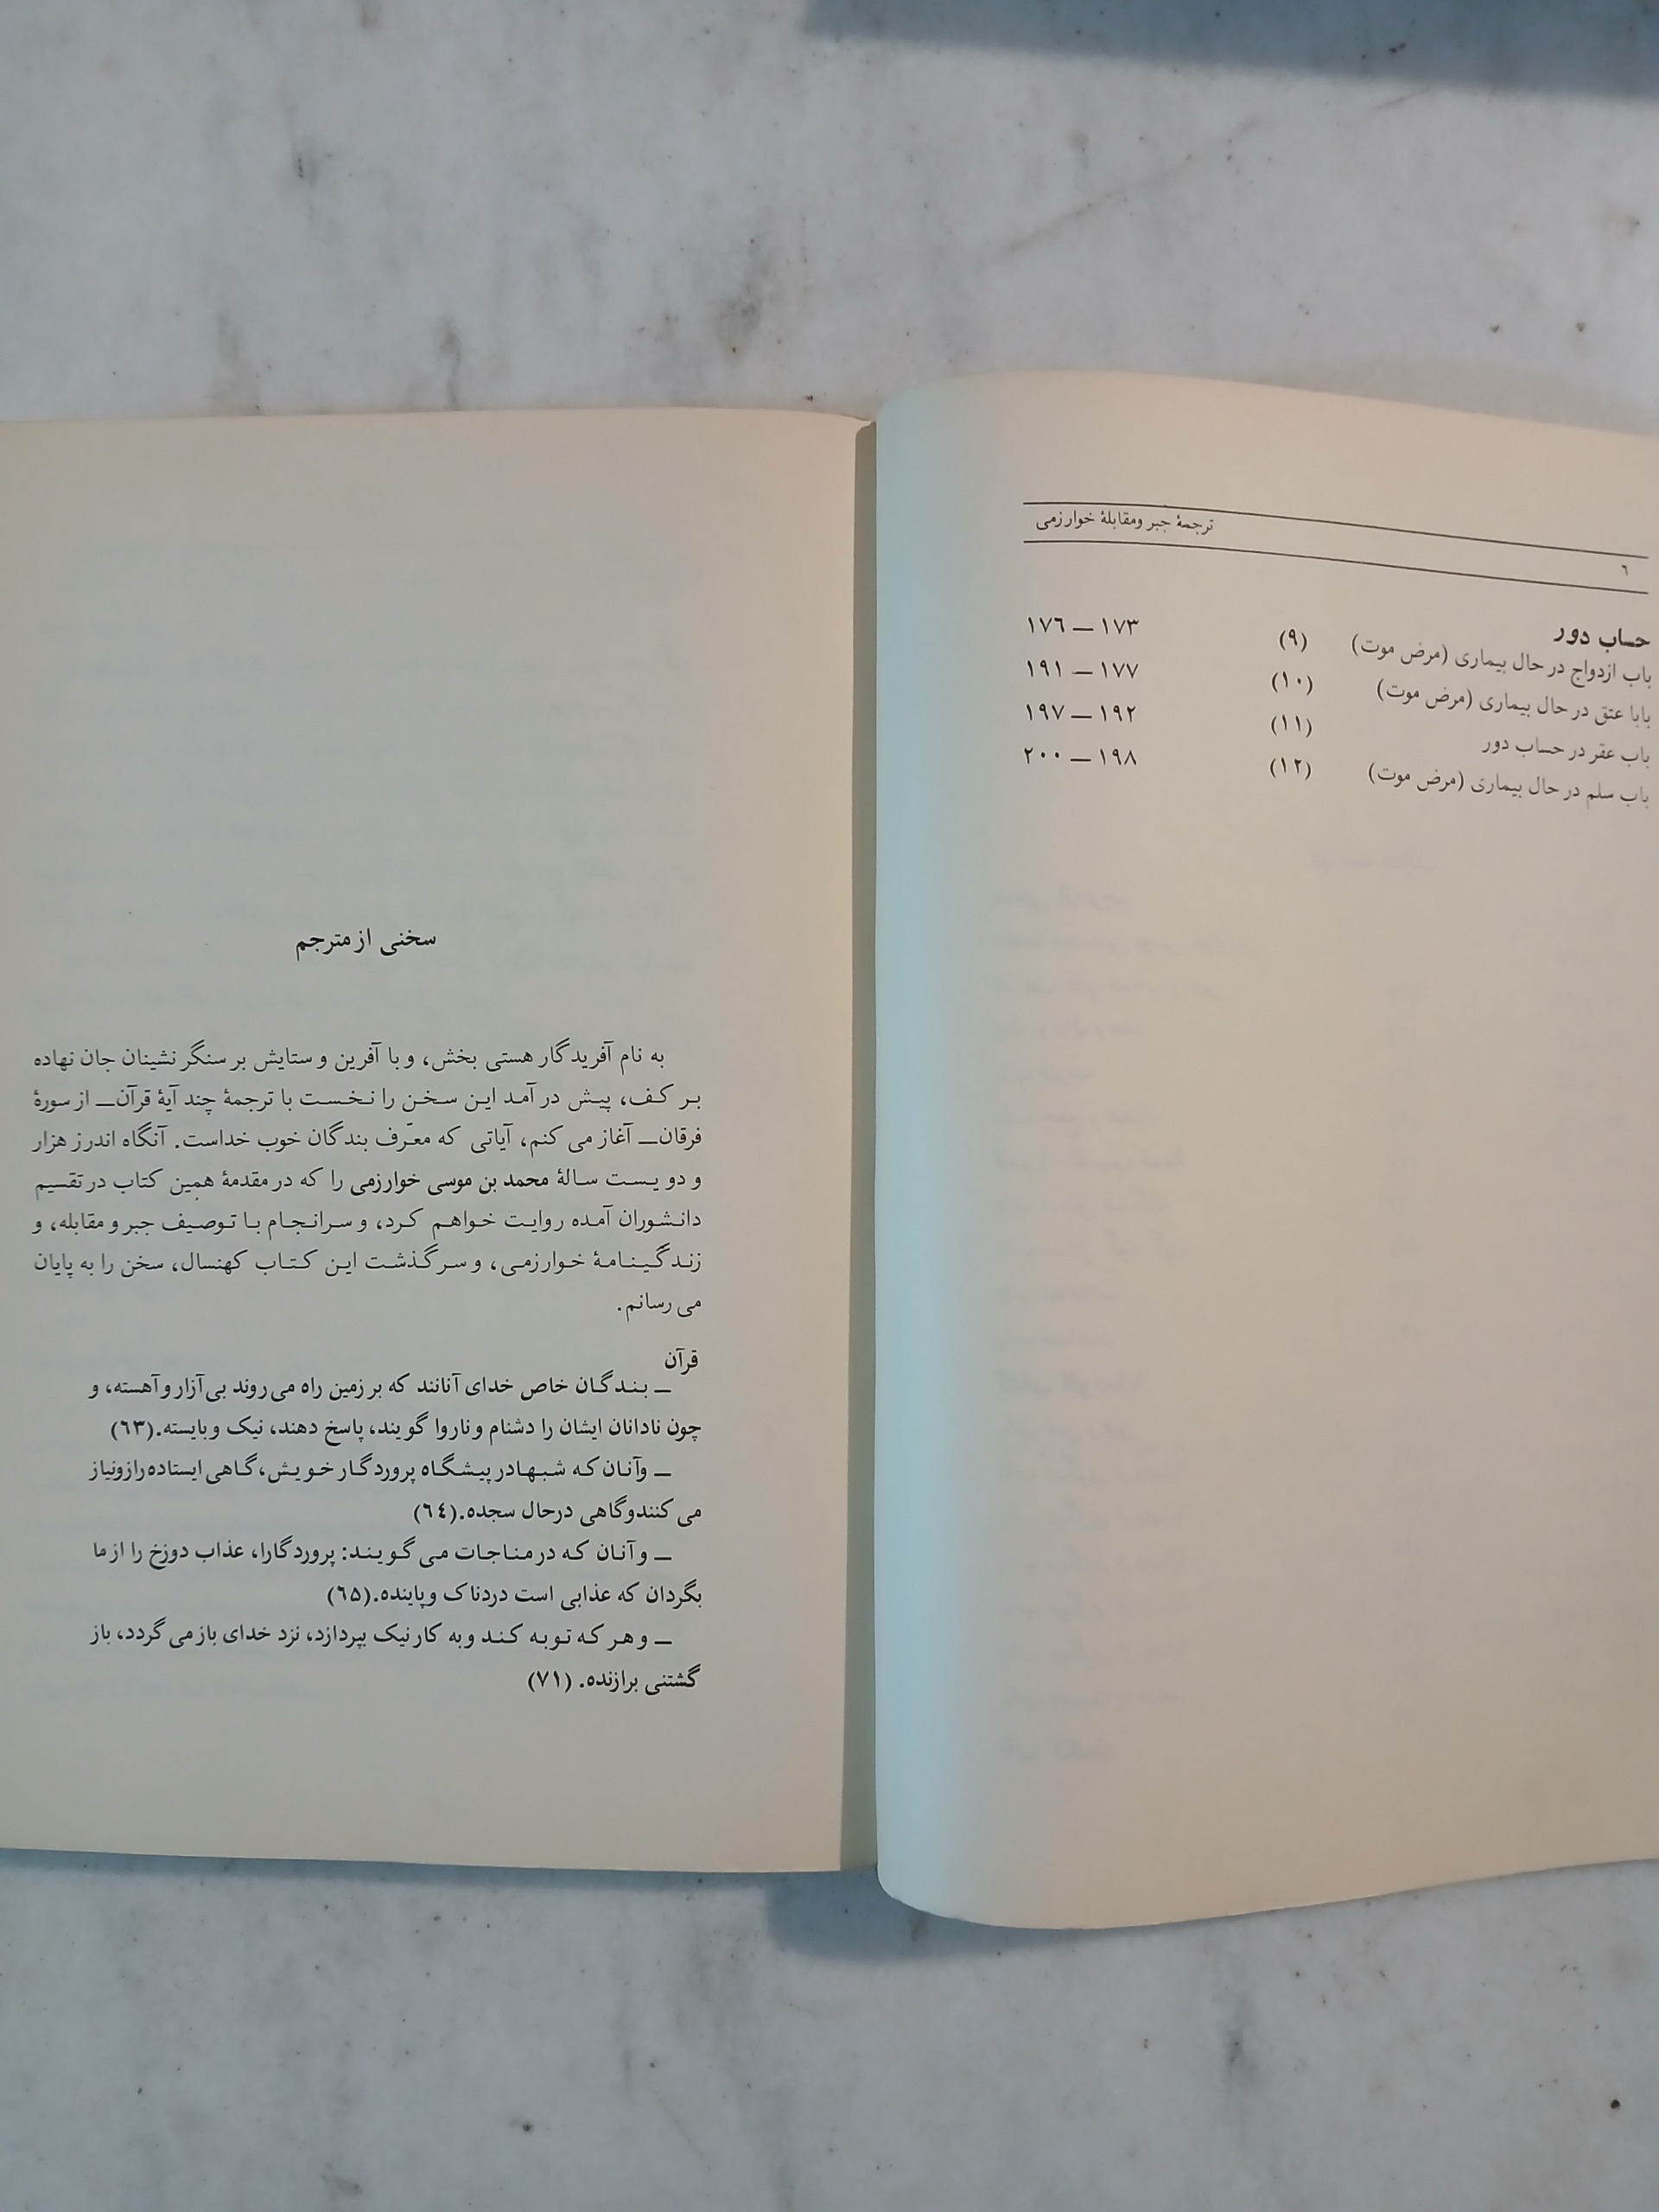 ترجمهٔ جبر ومقابلهٔ خوارزمی
٦
حساب دور
باب ازدواج در حال بیماری (مرض موت) (٩) ١٧٣ — ١٧٦
بابا عتق در حال بیماری (مرض موت) (١٠) ١٧٧ — ١٩١
باب عقر در حساب دور (١١) ١٩٢ — ١٩٧
باب سلم در حال بیماری (مرض موت) (١٢) ١٩٨ — ٢٠٠
سخنی از مترجم
به نام آفریدگار هستی بخش، و با آفرین و ستایش بر سنگر نشینان جان نهاده
بر کف، پیش در آمد این سخن را نخست با ترجمهٔ چند آیهٔ قرآن— از سورهٔ
فرقان— آغاز می کنم، آیاتی که معرّف بندگان خوب خداست. آنگاه اندرز هزار
و دویست سالهٔ محمد بن موسی خوارزمی را که در مقدمهٔ همین کتاب در تقسیم
دانشوران آمده روایت خواهم کرد، و سرانجام با توصیف جبر و مقابله، و
زندگینامهٔ خوارزمی، و سرگذشت این کتاب کهنسال، سخن را به پایان
می رسانم.
قرآن
— بندگان خاص خدای آنانند که بر زمین راه می روند بی آزار و آهسته، و
چون نادانان ایشان را دشنام و ناروا گویند، پاسخ دهند، نیک و بایسته.(٦٣)
— وآنان که شبها در پیشگاه پروردگار خویش، گاهی ایستاده راز و نیاز
می کنند و گاهی در حال سجده.(٦٤)
— و آنان که در مناجات می گویند: پروردگارا، عذاب دوزخ را از ما
بگردان که عذابی است دردناک و پاینده.(٦٥)
— و هر که توبه کند و به کار نیک بپردازد، نزد خدای باز می گردد، باز
گشتنی برازنده. (٧١)